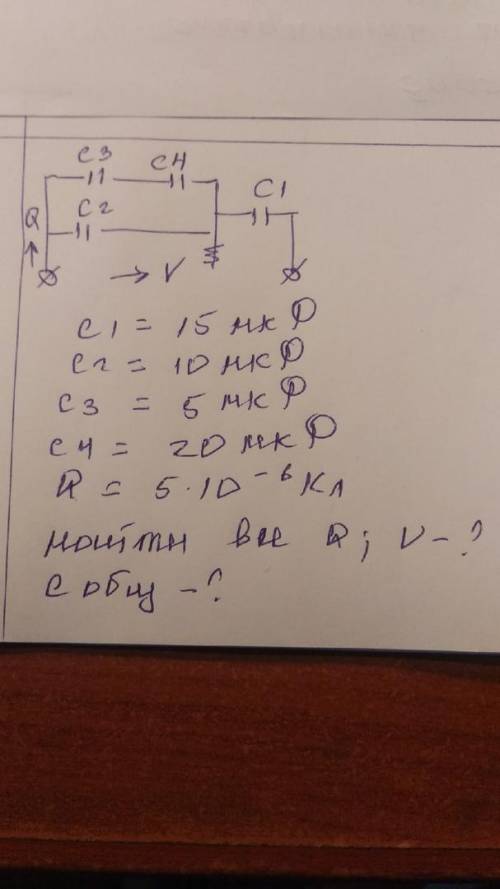 C3 C4
C1
Q C2
V
C1 = 15 мкФ
C2 = 10 мкФ
C3 = 5 мкФ
C4 = 20 мкФ
Q = 5·10⁻⁶ Кл
найти все Q; V - ?
C общ - ?